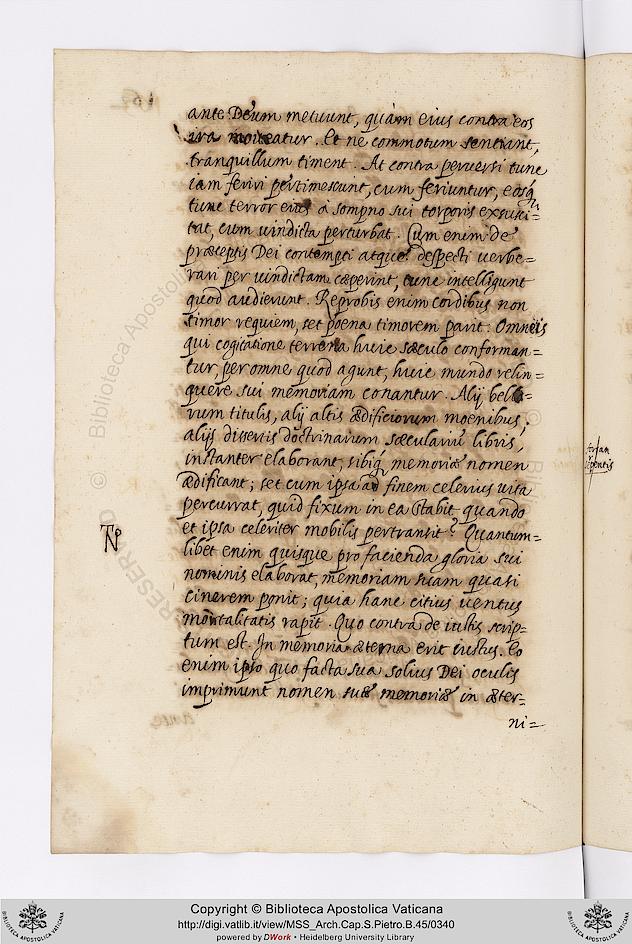 ante Deum metuunt, quàm eius contra eos
ira moveatur. Et ne commotum sentiant,
tranquillum timent. At contra perversi tunc
iam feriri pertimescunt, cum feriuntur, eosq;
tunc terror eius à sompno sui torporis exsusci=
tat, cum vindicta perturbat. Cum enim de
præceptis Dei contempti atque despecti verbe=
rari per vindictam cæperint, tunc intelligunt
quod audierunt. Reprobis enim cordibus non
timor requiem, set poena timorem parit. Omneis
qui cogitatione terrena huic sæculo conforman=
tur, per omne quod agunt, huic mundo relin=
quere sui memoriam conantur. Alij bello=
rum titulis, alij altis ædificiorum moenibus,
alij dissertis doctrinarum sæculariu libris,
instanter elaborant, sibiq; memoriæ nomen
ædificant; set cum ipsa ad finem celerius vita
percurrat, quid fixum in ea stabit quando
et ipsa celeriter mobilis pertransit? Quantum=
libet enim quisque pro facienda gloria sui
nominis elaborat, memoriam suam quasi
cinerem ponit; quia hanc citius ventus
mortalitatis rapit. Quo contra de iustis scrip=
tum est. In memoria æterna erit iustus. Eo
enim ipso quo facta sua solius Dei oculis
imprimunt nomen suæ memoriæ in æter=
ni=
forsan
Copyright © Biblioteca Apostolica Vaticana
http://digi.vatlib.it/view/MSS_Arch.Cap.S.Pietro.B.45/0340
powered by DWork • Heidelberg University Library